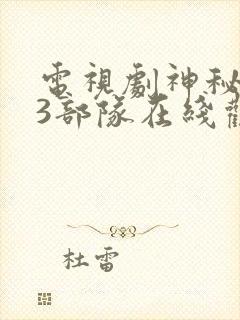 電視劇神秘
3部隊在綫
杜雷